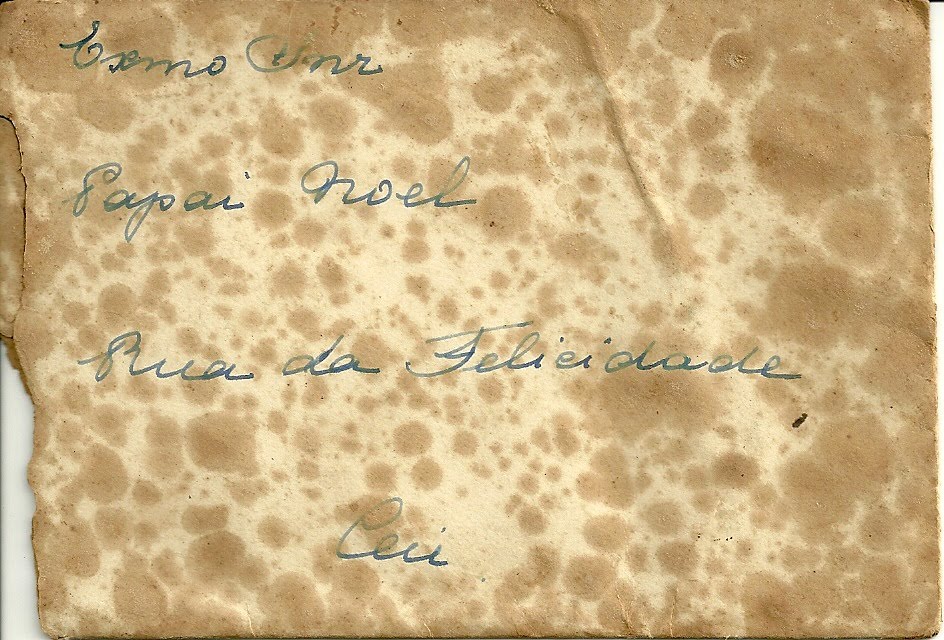 Exmo Snr
Papai Noel
Rua da Felicidade
Ceu